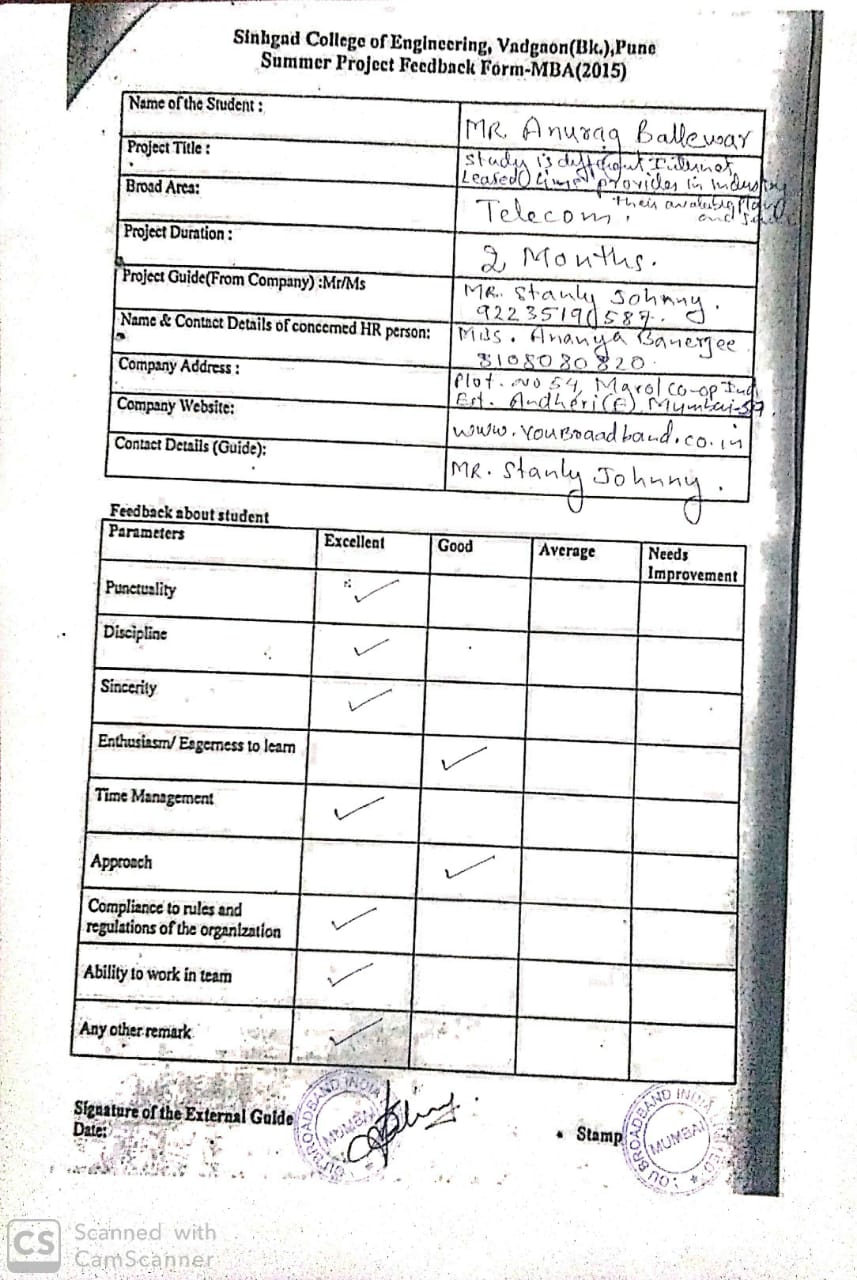 Sinhgad College of Engineering, Vadgaon(Bk.),Pune
Summer Project Feedback Form-MBA(2015)
Name of the Student : MR. Anurag Ballewar
Project Title : Study is different Internet
Leased line provides in Industry
their available plans
and
Broad Area: Telecom.
Project Duration : 2 Months.
Project Guide(From Company) :Mr/Ms MR. Stanly Johnny.
Name & Contact Details of concerned HR person: Ananya Banerjee
8108080820.
Company Address : Plot. No 54, Marol Co-op Ind
Est. Andheri(E) Mumbai-59.
Company Website: www.youbroadband.co.in
Contact Details (Guide): MR. Stanly Johnny.
Feedback about student
Parameters Excellent Good Average Needs
Improvement
Punctuality ✓
Discipline ✓
Sincerity ✓
Enthusiasm/ Eagerness to learn ✓
Time Management ✓
Approach ✓
Compliance to rules and
regulations of the organization ✓
Ability to work in team ✓
Any other remark ✓
Signature of the External Guide
Date:
YOU BROADBAND INDIA
MUMBAI
Stamp
YOU BROADBAND INDIA LIMITED
MUMBAI
CS Scanned with
CamScanner